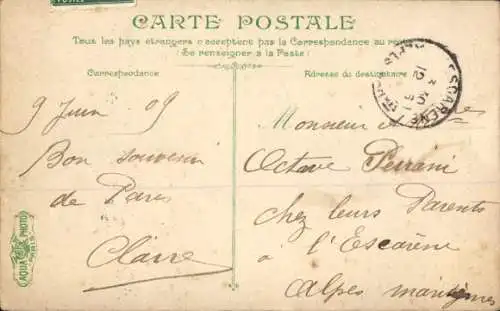 POSTES
CARTE POSTALE
Tous les pays étrangers n'acceptent pas la Correspondance au
(Se renseigner à la Poste)
Correspondance
9 Juin 09
Bon souvenir
de Paris
Claire
AQUA PHOTO
PARIS
Adresse du destinataire
ESCARÈNE
Monsieur et
Octave Perrani
chez leurs Parents
à l'Escarène
Alpes maritimes